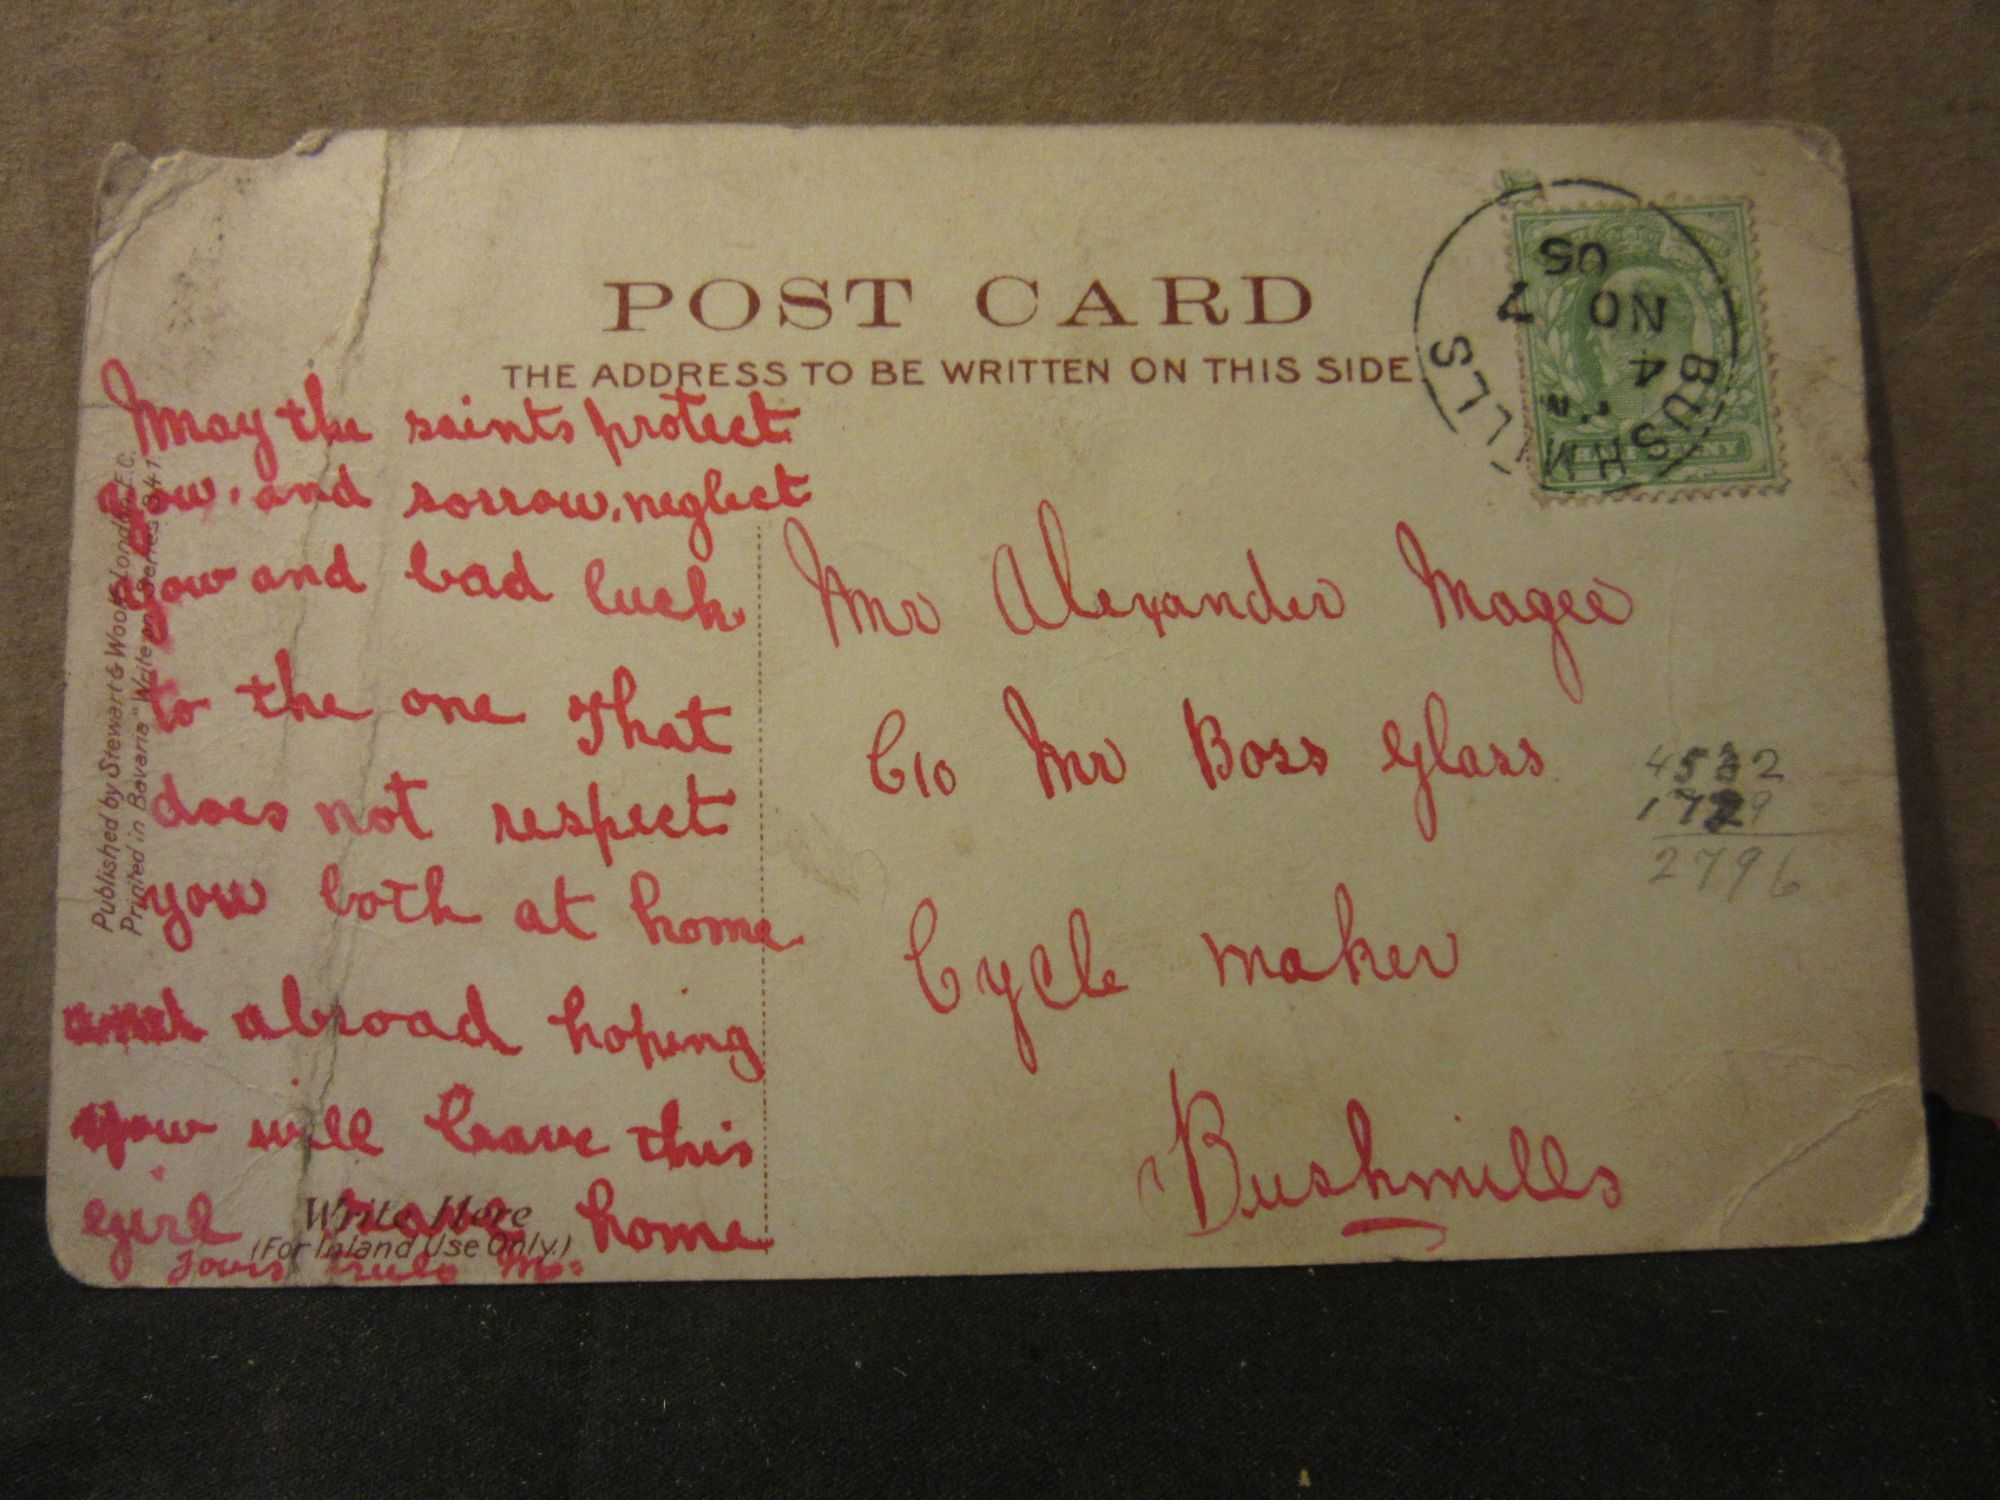 POST CARD
THE ADDRESS TO BE WRITTEN ON THIS SIDE
BUSHMILLS
4
NO 7
05
May the saints protect
you. and sorrow, neglect
you and bad luck
to the one That
does not respect
you both at home
and abroad hoping
you will leave this
girl home
Yours truly
Write Here
(For Inland Use Only.)
Published by Stewart & Woolf, London, E.C.
Printed in Bavaria "Write on" Series 341
Mr Alexander Magee
C/o Mr Boss Glass
Cycle maker
Bushmills
4532
1729
2796